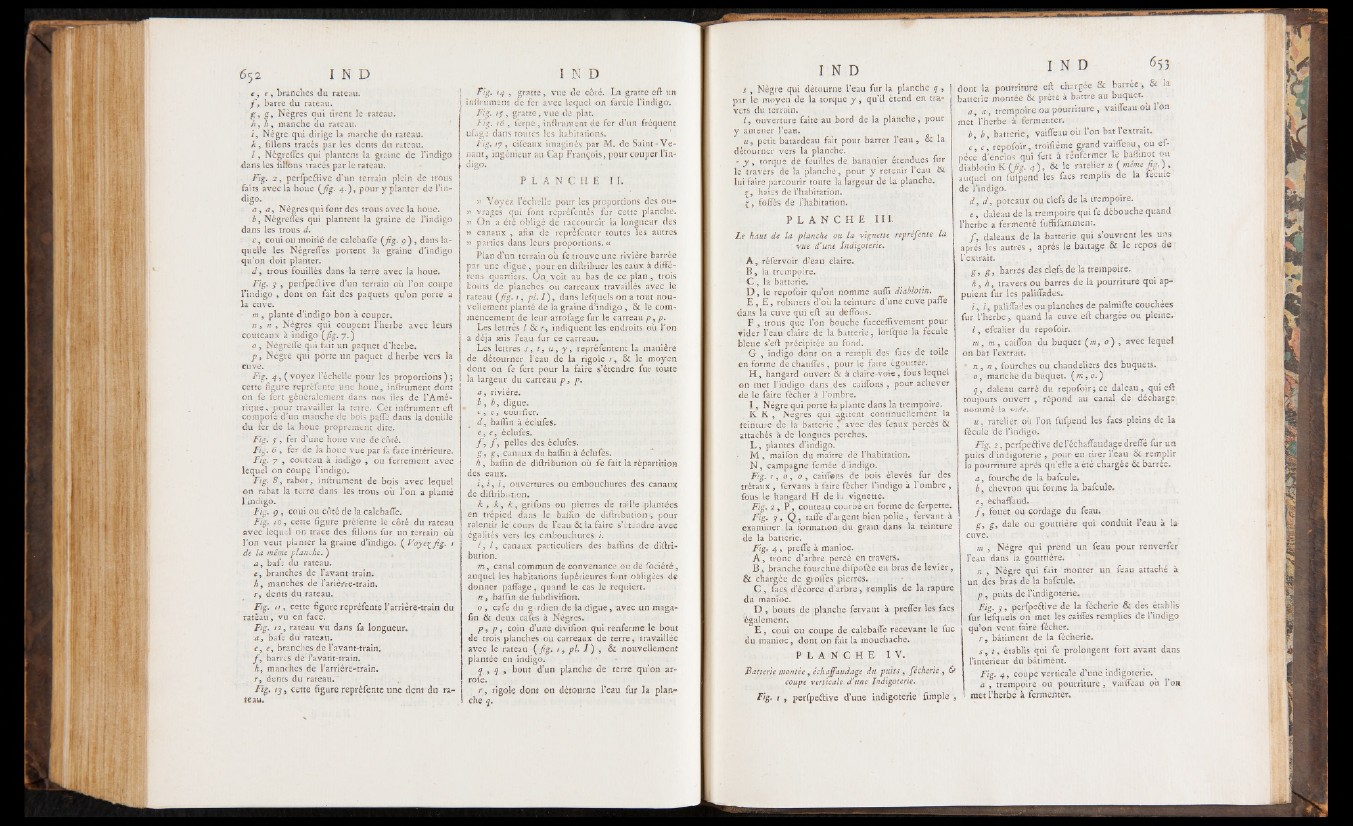 652 I N D
e, e, branches du rateau.
f, barre du rateau.
g, g, Nègres qui tirent le rateau.
h, h, manche du rateau.
i, Nègre qui dirige la marche du rateau.
k, sillens tracés par les dents du rateau.
l, Négresses qui plantent la graine de l'indigo
dans les sillons tracés par le rateau.
Fig. 2, perspective d'un terrain plein de trous
faits avec la houe (fig. 4.), pour y planter de l'in-
digo.
a, a, Nègres qui font des trous avec la houe.
b, Négresses qui plantent la graine de l'indigo
dans les trous d.
c, coui ou moitié de calebasse (fig. 9), dans la-
quelle les Négresses portent la graine d'indigo
qu'on doit planter.
d, trous fouillés dans la terre avec la houe.
Fig. 3, perspective d'un terrain où l'on coupe
l'indigo, dont on fait des paquets qu'on porte à
la cuve.
m, plante d'indigo bon à couper.
n, n, Nègres qui coupent l'herbe avec leurs
couteaux à indigo (fig. 7.)
o, Négresse qui fait un paquet d'herbe.
p, Nègre qui porte un paquet d'herbe vers la
cuve.
Fig. 4, (voyez l'échelle pour les proportions);
cette figure représente une houe, instrument dont
on se sert généralement dans nos iles de l'Amé-
rique, pour travailler la terre. Cet instrument est
composé d'un manche de bois passé dans la douille
du fer de la houe proprement dite.
Fig. 5, fer d'une houe vue de côté.
Fig. 6, fer de la houe vue par sa face intérieure.
Fig. 7, couteau à indigo, ou ferrement avec
lequel on coupe l'indigo.
Fig. 8, rabot, instrument de bois avec lequel
on rabat la terre dans les trous où l'on a planté
l'indigo.
Fig. 9, coui ou côté de la calebasse.
Fig. 10, cette figure présente le côté du rateau
avec lequel on trace des sillons sur un terrain où
l'on veut planter la graine d'indigo. (Voyez fig. 1
de la même planche.)
a, base du rateau.
e, branches de l'avant-train.
h, manches de l'arrière-train.
r, dents du rateau.
Fig. 11, cette figure représente l'arrière-train du
rateau, vu en face.
Fig. 12, rateau vu dans sa longueur.
a, base du rateau.
e, e, branches de l'avant-train.
f, barres de l'avant-train.
h, manches de l'arrière-train.
r, dents du rateau.
Fig. 13, cette figure représente une dent du ra-
teau.
I N D
Fig. 14, gratte, vue de côté. La gratte est un
instrument de fer avec lequel on sarcle l'indigo.
Fig. 15, gratte, vue de plat.
Fig. 16, serpe, instrument de fer d'un fréquent
usage dans toutes les habitations.
Fig. 17, ciseaux imaginés par M. de Saint-Ve-
nant, ingénieur au Cap François, pour couper l'in-
digo.
P L A N C H E I I.
» Voyez l'échelle pour les proportions des ou-
» vrages qui sont représentés sur cette planche.
» On a été obligé de raccourcir la longueur des
» canaux, afin de représenter toutes les autres
» parties dans leurs proportions. «
Plan d'un terrain où se trouve une rivière barrée
par une digue, pour en distribuer les eaux à diffé-
rens quartiers. On voit au bas de ce plan, trois
bouts de planches ou carreaux travaillés avec le
rateau (fig. 1, pl. I), dans lesquels on a tout nou-
vellement planté de la graine d'indigo, & le com-
mencement de leur arrosage sur le carreau p, p.
Les lettres l & t, indiquent les endroits où l'on
a déja mis l'eau sur ce carreau.
Les lettres s, t, u, y, représentent la manière
de détourner l'eau de la rigole r, & le moyen
dont on se sert pour la faire s'étendre sur toute
la largeur du carreau p, p.
a, rivière.
b, b, digue.
c, c, coursier.
d, bassin à écluses.
e, e, écluses.
f, f, pelles des écluses.
g, g, canaux du bassin à écluses.
h, bassin de distribution où se fait la répartition
des eaux.
i, i, i, ouvertures ou embouchures des canaux
de distribution.
k, k, k, grisons ou pierres de taille plantées
en trépied dans le bassin de distribution, pour
ralentir le cours de l'eau & la faire s'étendre avec
égalités vers les embouchures i.
l, l, canaux particuliers des bassins de distri-
bution.
m, canal commun de convenance ou de société,
auquel les habitations supérieures sont obligées de
donner passage, quand le cas le requiert.
n, bassin de subdivision.
o, case du gardien de la digue, avec un maga-
sin & deux cases à Nègres.
p, p, coin d'une division qui renferme le bout
de trois planches ou carreaux de terre, travaillée
avec le rateau (fig. 1, pl. I), & nouvellement
plantée en indigo.
q, q, bout d'un planche de terre qu'on ar-
rose.
r, rigole dont on détourne l'eau sur la plan-
che q.
I N D
s, Nègre qui détourne l'eau sur la planche q,
par le moyen de la torque y, qu'il étend en tra-
vers du terrain.
t, ouverture faite au bord de la planche, pour
y amener l'eau.
u, petit batardeau fait pour barrer l'eau, & la
détourner vers la planche.
y, torque de feuilles de bananier étendues sur
le travers de la planche, pour y retenir l'eau &
lui faire parcourir toute la largeur de la planche.
z, haies de l'habitation.
ζ, fossés de l'habitation.
P L A N C H E I I I.
Le haut de la planche ou la vignette représente la
vue d'une Indigoterie.
A, réservoir d'eau claire.
B, la trempoire.
C, la batterie.
D, le reposoir qu'on nomme aussi diablotin.
E, E, robinets d'où la teinture d'une cuve passe
dans la cuve qui est au dessous.
F, trous que l'on bouche successivement pour
vider l'eau claire de la batterie, lorsque la fécule
bleue s'est précipitée au fond.
G, indigo dont on a rempli des sacs de toile
en forme de chausses, pour le faire égoutter.
H, hangard ouvert & à claire-voie, sous lequel
on met l'indigo dans des caissons, pour achever
de le faire sécher à l'ombre.
I, Nègre qui porte la plante dans la trempoire.
K K, Nègres qui agitent continuellement la
teinture de la batterie, avec des seaux percés &
attachés à de longues perches.
L, plantes d'indigo.
M, maison du maître de l'habitation.
N, campagne semée d'indigo.
Fig. 1, o, o, caissons de bois élevés sur des
trétaux, servans à faire sécher l'indigo à l'ombre,
sous le hangard H de la vignette.
Fig. 2, P, couteau courbé en forme de serpette.
Fig. 3, Q, tasse d'argent bien polie, servant à
examiner la formation du grain dans la teinture
de la batterie.
Fig. 4, presse à manioc.
A, tronc d'arbre percé en travers.
B, branche fourchue disposée en bras de levier,
& chargée de grosses pierres.
C, sacs d'écorce d'arbre, remplis de la rapure
du manioc.
D, bouts de planche servant à presser les sacs
également.
E, coui ou coupe de calebasse recevant le suc
du manioc, dont on fait la mouchache.
P L A N C H E I V.
Batterie montée, échaffaudage du puits, sécherie, &
coupe verticale d'une Indigoterie.
Fig. 1, perspective d'une indigoterie simple,
I N D 653
dont la pourriture est chargée & barrée, & la
batterie montée & prête à battre au buquet.
a, a, trempoire ou pourriture, vaisseau où l'on
met l'herbe à fermenter.
b, b, batterie, vaisseau où l'on bat l'extrait.
c, c, reposoir, troisième grand vaisseau, ou es-
pèce d'enclos qui sert à renfermer le bassinot ou
diablotin K (fig. 4), & le ratelier u (même fig.),
auquel on suspend les sacs remplis de la fécule
de l'indigo.
d, d, poteaux ou clefs de la trempoire.
e, daleau de la trempoire qui se débouche quand
l'herbe a fermenté suffisamment.
f, daleaux de la batterie qui s'ouvrent les uns
après les autres, après le battage & le repos de
l'extrait.
g, g, barres des clefs de la trempoire.
h, h, travers ou barres de la pourriture qui ap-
puient sur les palissades.
i, i, palissades ou planches de palmiste couchées
sur l'herbe, quand la cuve est chargée ou pleine.
l, escalier du reposoir.
m, m, caisson du buquet (m, o), avec lequel
on bat l'extrait.
n, n, fourches ou chandeliers des buquets.
o, manche du buquet. (m, o.)
q, daleau carré du reposoir; ce daleau, qui est
toujours ouvert, répond au canal de décharge
nommé la vuide.
u, ratelier où l'on suspend les sacs pleins de la
fécule de l'indigo.
Fig. 2, perspective de l'échaffaudage dressé sur un
puits d'indigoterie, pour en tirer l'eau & remplir
la pourriture après qu'elle a été chargée & barrée.
a, fourche de la bascule.
b, chevron qui forme la bascule.
c, échaffaud.
f, fouet ou cordage du seau.
g, g, dale ou gouttière qui conduit l'eau à la
cuve.
m, Nègre qui prend un seau pour renverser
l'eau dans la gouttière.
n, Nègre qui fait monter un seau attaché à
un des bras de la bascule.
p, puits de l'indigoterie.
Fig. 3, perspective de la sécherie & des établis
sur lesquels on met les caisses remplies de l'indigo
qu'on veut faire sécher.
r, bâtiment de la sécherie.
s, t, établis qui se prolongent fort avant dans
l'intérieur du bâtiment.
Fig. 4, coupe verticale d'une indigoterie.
a, trempoire ou pourriture, vaisseau où l'on
met l'herbe à fermenter.